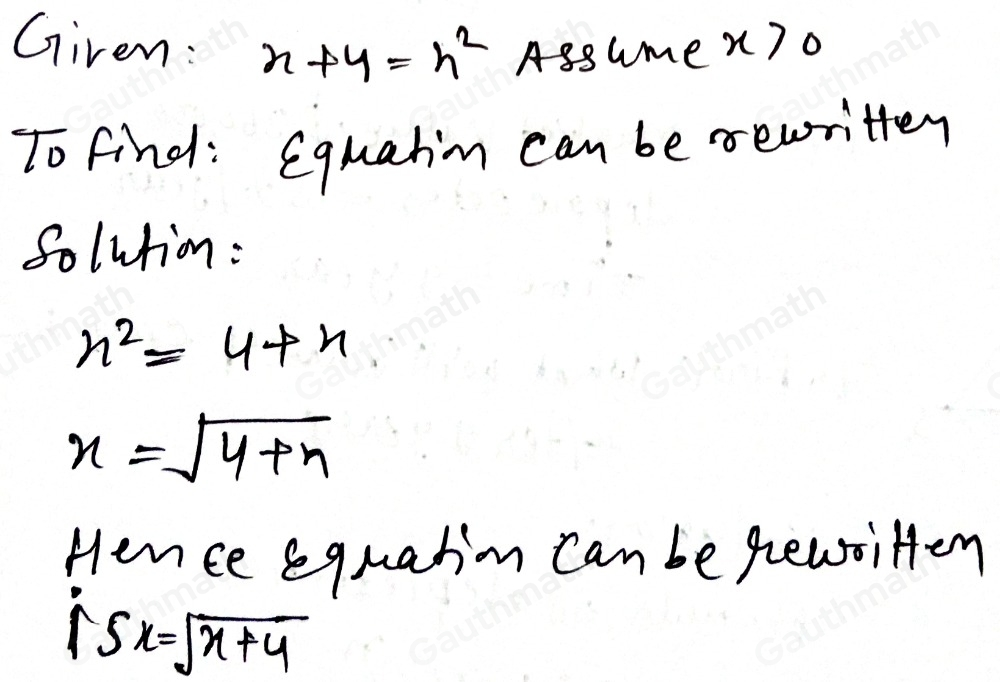 Given: x+4=x² Assume x>0
To find: Equation can be rewritten
Solution:
x²= 4+x
x=√4+x
Hence Equation can be rewritten
is x=√x+4
Gauthmath